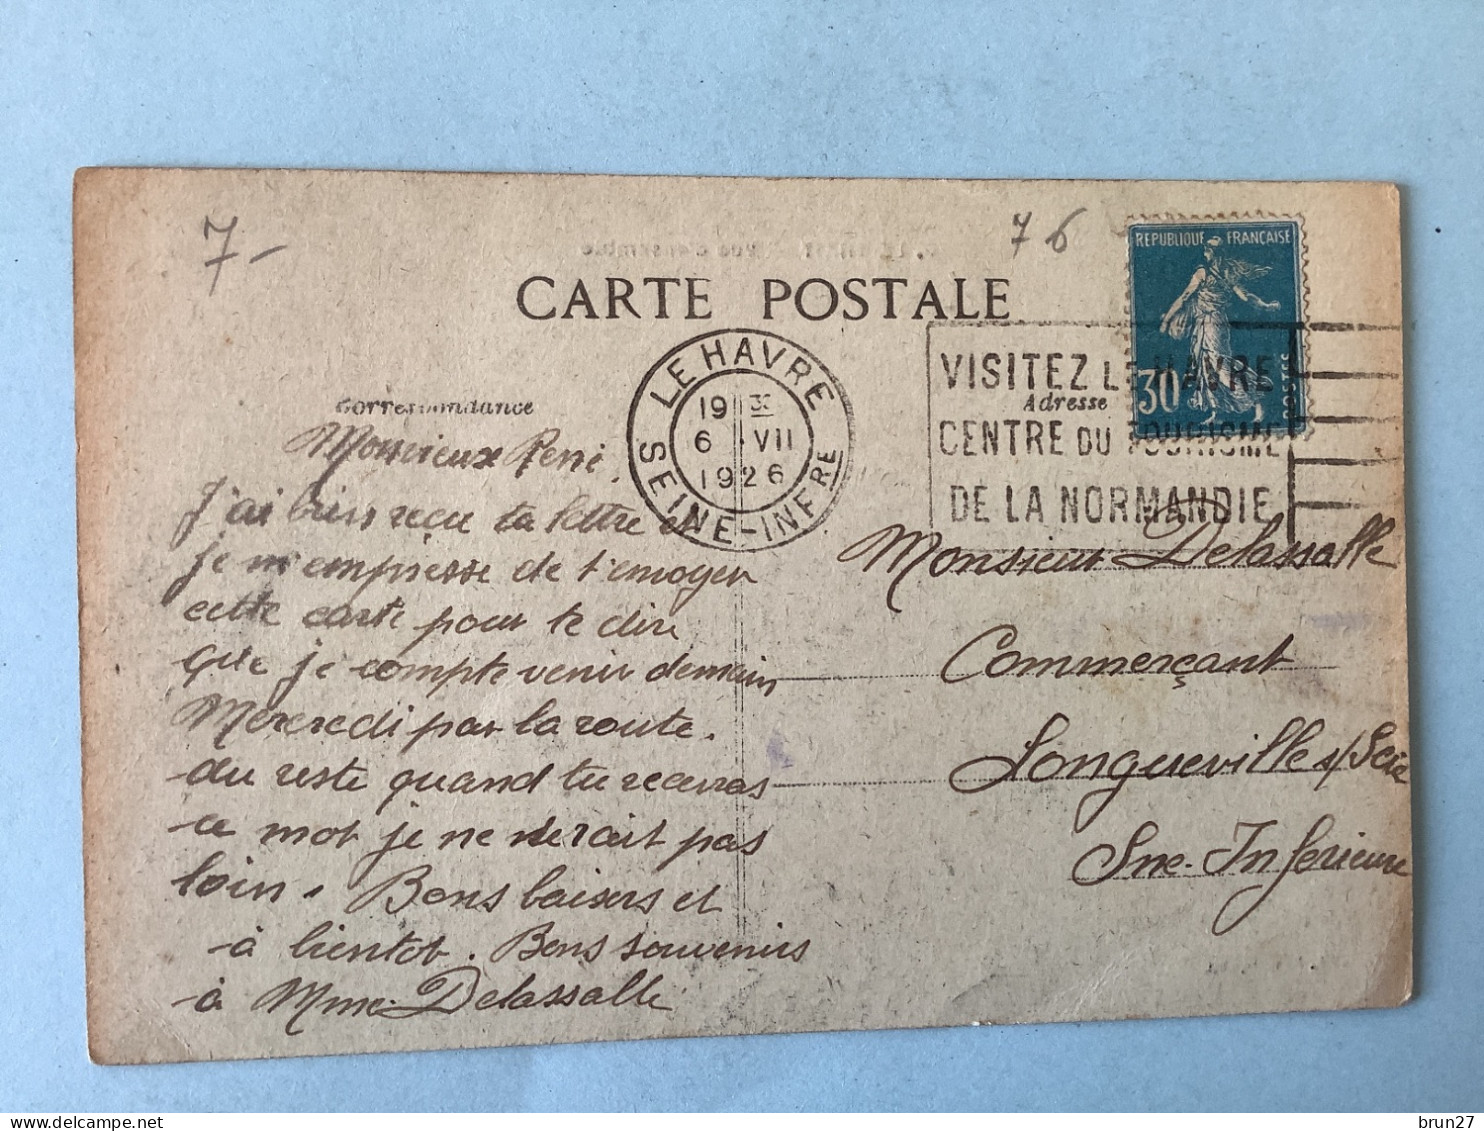 7-
76
REPUBLIQUE FRANÇAISE
30c
POSTES
CARTE POSTALE
LE HAVRE
19 30
6 VII
1926
SEINE-INFRE
VISITEZ LE HAVRE
CENTRE DU TOURISME
DE LA NORMANDIE
Correspondance
Adresse
Mon vieux René,
J'ai bien reçu ta lettre et
je m'empresse de t'envoyer
cette carte pour te dire
que je compte venir demain
Mercredi par la route.
du reste quand tu recevras
ce mot je ne serait pas
loin. Bons baisers et
à bientot. Bons souvenirs
à Mme Delassalle
Monsieur Delassalle
Commerçant
Longueville s/Scie
Sne-Inferieure
brun27